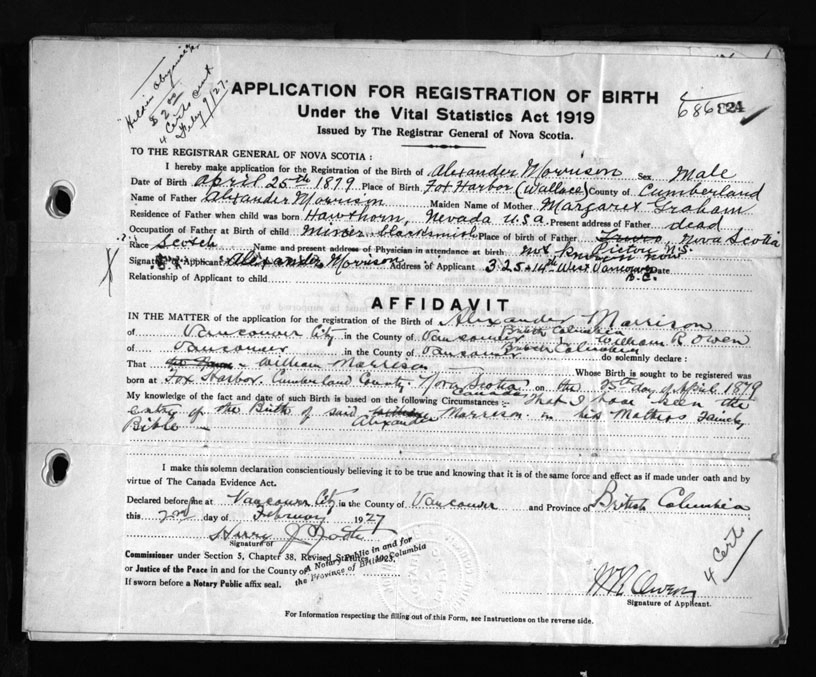 $2.00
4 Certs sent
July 9/27.
APPLICATION FOR REGISTRATION OF BIRTH
Under the Vital Statistics Act 1919
Issued by The Registrar General of Nova Scotia.
686 824
TO THE REGISTRAR GENERAL OF NOVA SCOTIA:
I hereby make application for the Registration of the Birth of Alexander Morrison Sex Male
Date of Birth April 25th 1879 Place of Birth Fox Harbor (Wallace) County of Cumberland
Name of Father Alexander Morrison Maiden Name of Mother Margaret Graham
Residence of Father when child was born Hawthorn, Nevada U.S.A. Present address of Father dead
Occupation of Father at Birth of child Miner blacksmith Place of birth of Father Nova Scotia
Pictou N.S.
Race Scotch Name and present address of Physician in attendance at birth not known now
Signature of Applicant Alexander Morrison Address of Applicant 325-14th West Vancouver Date
B.C.
Relationship of Applicant to child
AFFIDAVIT
IN THE MATTER of the application for the registration of the Birth of Alexander Morrison
of Vancouver City in the County of Vancouver British Columbia William R. Owen
of Vancouver in the County of Vancouver British Columbia do solemnly declare:
That William Morrison Whose Birth is sought to be registered was
born at Fox Harbor, Cumberland County, Nova Scotia on the 25th day of April 1879
Canada
My knowledge of the fact and date of such Birth is based on the following Circumstances: That I have seen the
entry of the Birth of said Alexander Morrison in his Mothers Family
Bible
I make this solemn declaration conscientiously believing it to be true and knowing that it is of the same force and effect as if made under oath and by
virtue of The Canada Evidence Act.
Declared before me at Vancouver City in the County of Vancouver and Province of British Columbia
this 2nd day of February 1927
Harry J.
Signature of
Commissioner under Section 5, Chapter 38, Revised Statutes, 1923.
or Justice of the Peace in and for the County of
A Notary Public in and for
the Province of British Columbia
If sworn before a Notary Public affix seal.
4 Certs
W R Owen
Signature of Applicant.
For Information respecting the filling out of this Form, see Instructions on the reverse side.